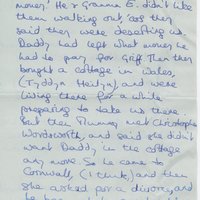 money. He & Granma E. didn't like
them walking out, 'cos they
said they were deserting us.
Daddy had left what money he
had to pay for Griff. Then they
bought a cottage in Wales,
(Tyddyn Heilyn) and were
living there for a while
preparing to take us there.
But then Mummy met Christopher
Wordsworth, and said she didn't
want Daddy in the cottage
any more. So he came to
Cornwall, (I think) and then
she asked for a divorce, and
he